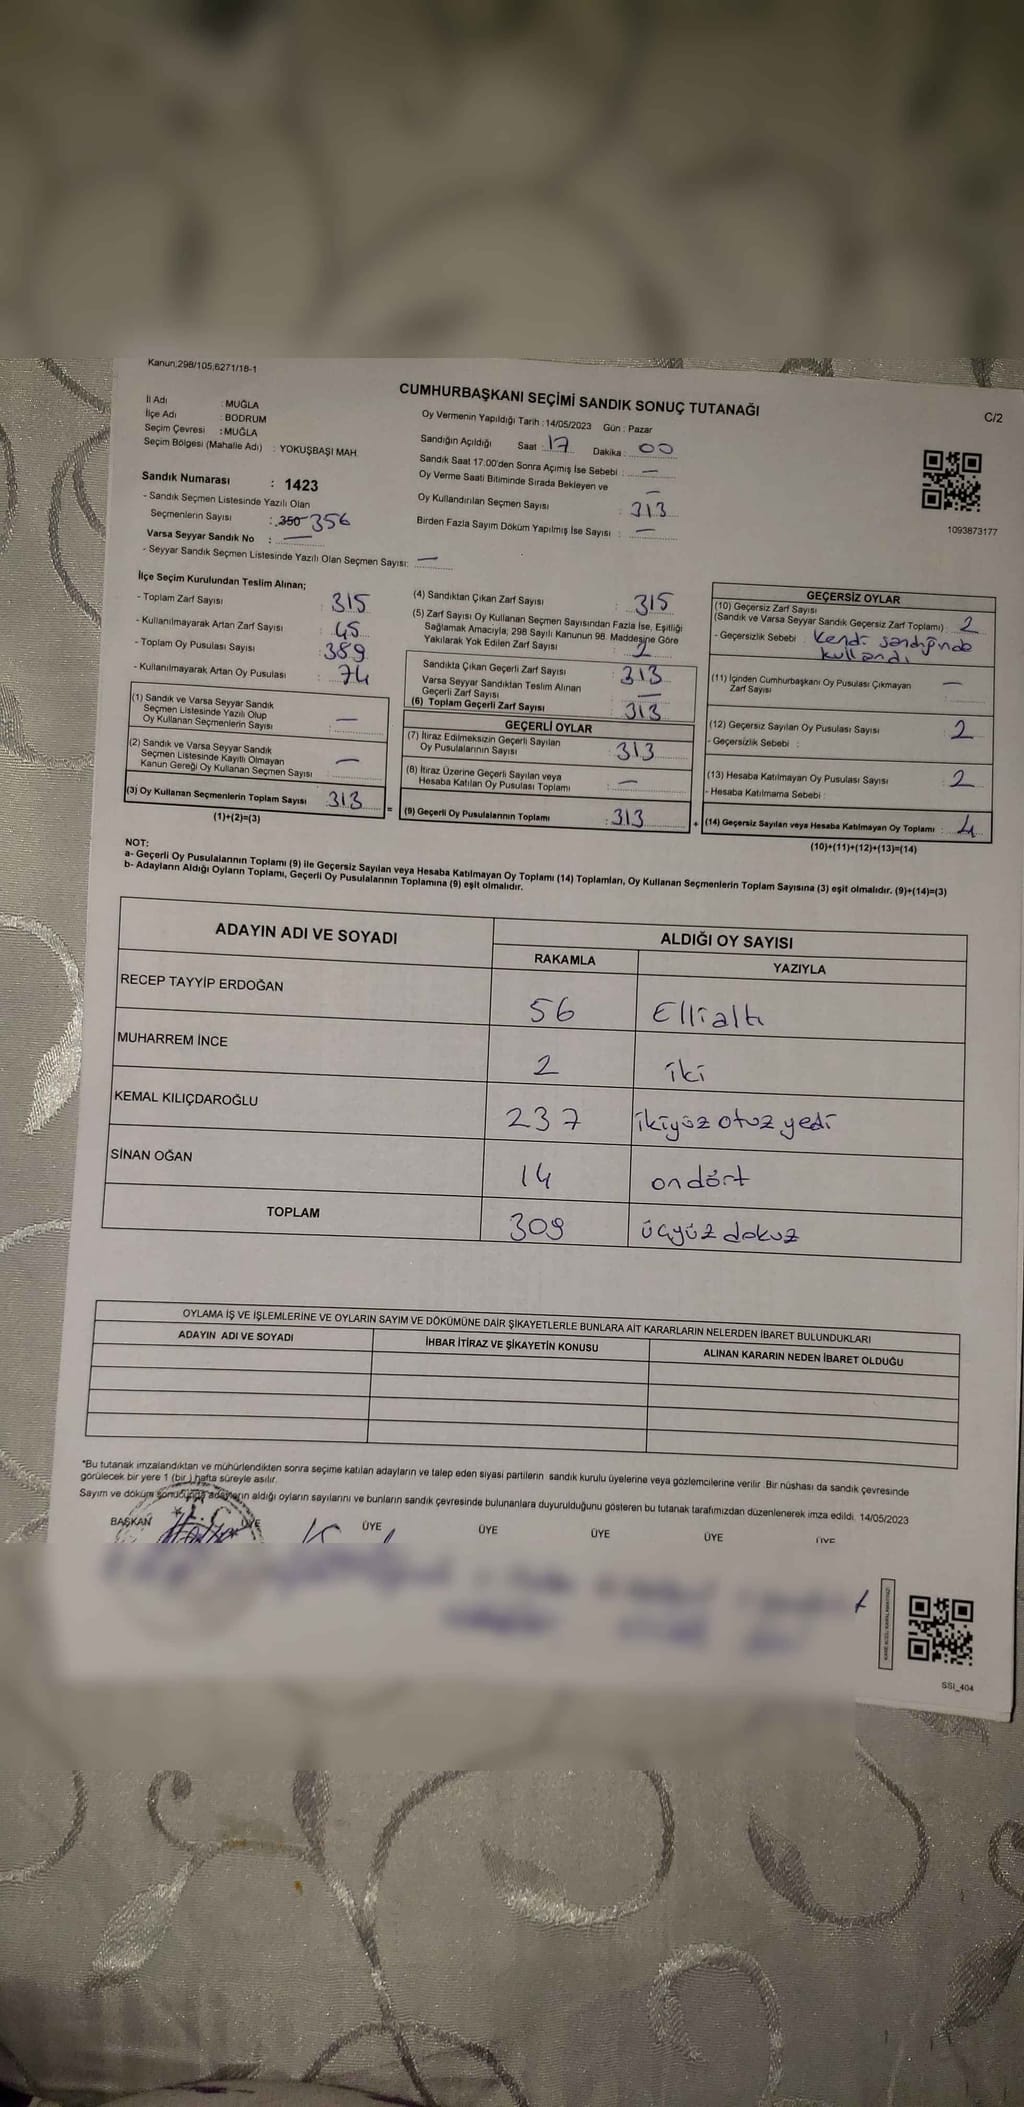 Kanun:298/105,6271/18-1
CUMHURBAŞKANI SEÇİMİ SANDIK SONUÇ TUTANAĞI
C/2
İl Adı : MUĞLA
İlçe Adı : BODRUM
Seçim Çevresi : MUĞLA
Seçim Bölgesi (Mahalle Adı) : YOKUŞBAŞI MAH.
Oy Vermenin Yapıldığı Tarih : 14/05/2023 Gün : Pazar
Sandığın Açıldığı Saat : 17 Dakika : 00
Sandık Saat 17:00'den Sonra Açımış İse Sebebi : —
Oy Verme Saati Bitiminde Sırada Bekleyen ve —
Oy Kullandırılan Seçmen Sayısı : 313
Birden Fazla Sayım Döküm Yapılmış İse Sayısı : —
1093873177
Sandık Numarası : 1423
- Sandık Seçmen Listesinde Yazılı Olan
Seçmenlerin Sayısı : 350 356
Varsa Seyyar Sandık No : —
- Seyyar Sandık Seçmen Listesinde Yazılı Olan Seçmen Sayısı: —
İlçe Seçim Kurulundan Teslim Alınan;
- Toplam Zarf Sayısı : 315
- Kullanılmayarak Artan Zarf Sayısı : 45
- Toplam Oy Pusulası Sayısı : 389
- Kullanılmayarak Artan Oy Pusulası : 74
(1) Sandık ve Varsa Seyyar Sandık
Seçmen Listesinde Yazılı Olup
Oy Kullanan Seçmenlerin Sayısı —
(2) Sandık ve Varsa Seyyar Sandık
Seçmen Listesinde Kayıtlı Olmayan
Kanun Gereği Oy Kullanan Seçmen Sayısı —
(3) Oy Kullanan Seçmenlerin Toplam Sayısı : 313
(1)+(2)=(3)
(4) Sandıktan Çıkan Zarf Sayısı : 315
(5) Zarf Sayısı Oy Kullanan Seçmen Sayısından Fazla İse, Eşitliği
Sağlamak Amacıyla; 298 Sayılı Kanunun 98. Maddesine Göre
Yakılarak Yok Edilen Zarf Sayısı : 2
Sandıkta Çıkan Geçerli Zarf Sayısı : 313
Varsa Seyyar Sandıktan Teslim Alınan
Geçerli Zarf Sayısı —
(6) Toplam Geçerli Zarf Sayısı : 313
GEÇERLİ OYLAR
(7) İtiraz Edilmeksizin Geçerli Sayılan
Oy Pusulalarının Sayısı : 313
(8) İtiraz Üzerine Geçerli Sayılan veya
Hesaba Katılan Oy Pusulası Toplamı : —
= (9) Geçerli Oy Pusulalarının Toplamı : 313
GEÇERSİZ OYLAR
(10) Geçersiz Zarf Sayısı
(Sandık ve Varsa Seyyar Sandık Geçersiz Zarf Toplamı) : 2
- Geçersizlik Sebebi : Kendi sandığında
kullandı
(11) İçinden Cumhurbaşkanı Oy Pusulası Çıkmayan
Zarf Sayısı —
(12) Geçersiz Sayılan Oy Pusulası Sayısı : 2
- Geçersizlik Sebebi :
(13) Hesaba Katılmayan Oy Pusulası Sayısı : 2
- Hesaba Katılmama Sebebi :
+ (14) Geçersiz Sayılan veya Hesaba Katılmayan Oy Toplamı : 4
(10)+(11)+(12)+(13)=(14)
NOT:
a- Geçerli Oy Pusulalarının Toplamı (9) ile Geçersiz Sayılan veya Hesaba Katılmayan Oy Toplamı (14) Toplamları, Oy Kullanan Seçmenlerin Toplam Sayısına (3) eşit olmalıdır. (9)+(14)=(3)
b- Adayların Aldığı Oyların Toplamı, Geçerli Oy Pusulalarının Toplamına (9) eşit olmalıdır.
ADAYIN ADI VE SOYADI ALDIĞI OY SAYISI
RAKAMLA YAZIYLA
RECEP TAYYİP ERDOĞAN 56 Ellialtı
MUHARREM İNCE 2 iki
KEMAL KILIÇDAROĞLU 237 ikiyüz otuz yedi
SİNAN OĞAN 14 ondört
TOPLAM 309 üçyüz dokuz
OYLAMA İŞ VE İŞLEMLERİNE VE OYLARIN SAYIM VE DÖKÜMÜNE DAİR ŞİKAYETLERLE BUNLARA AİT KARARLARIN NELERDEN İBARET BULUNDUKLARI
ADAYIN ADI VE SOYADI İHBAR İTİRAZ VE ŞİKAYETİN KONUSU ALINAN KARARIN NEDEN İBARET OLDUĞU
*Bu tutanak imzalandıktan ve mühürlendikten sonra seçime katılan adayların ve talep eden siyasi partilerin sandık kurulu üyelerine veya gözlemcilerine verilir. Bir nüshası da sandık çevresinde
görülecek bir yere 1 (bir) hafta süreyle asılır.
Sayım ve döküm sonucunda adayların aldığı oyların sayılarını ve bunların sandık çevresinde bulunanlara duyurulduğunu gösteren bu tutanak tarafımızdan düzenlenerek imza edildi. 14/05/2023
BAŞKAN ÜYE ÜYE ÜYE ÜYE ÜYE ÜYE
SSI_404